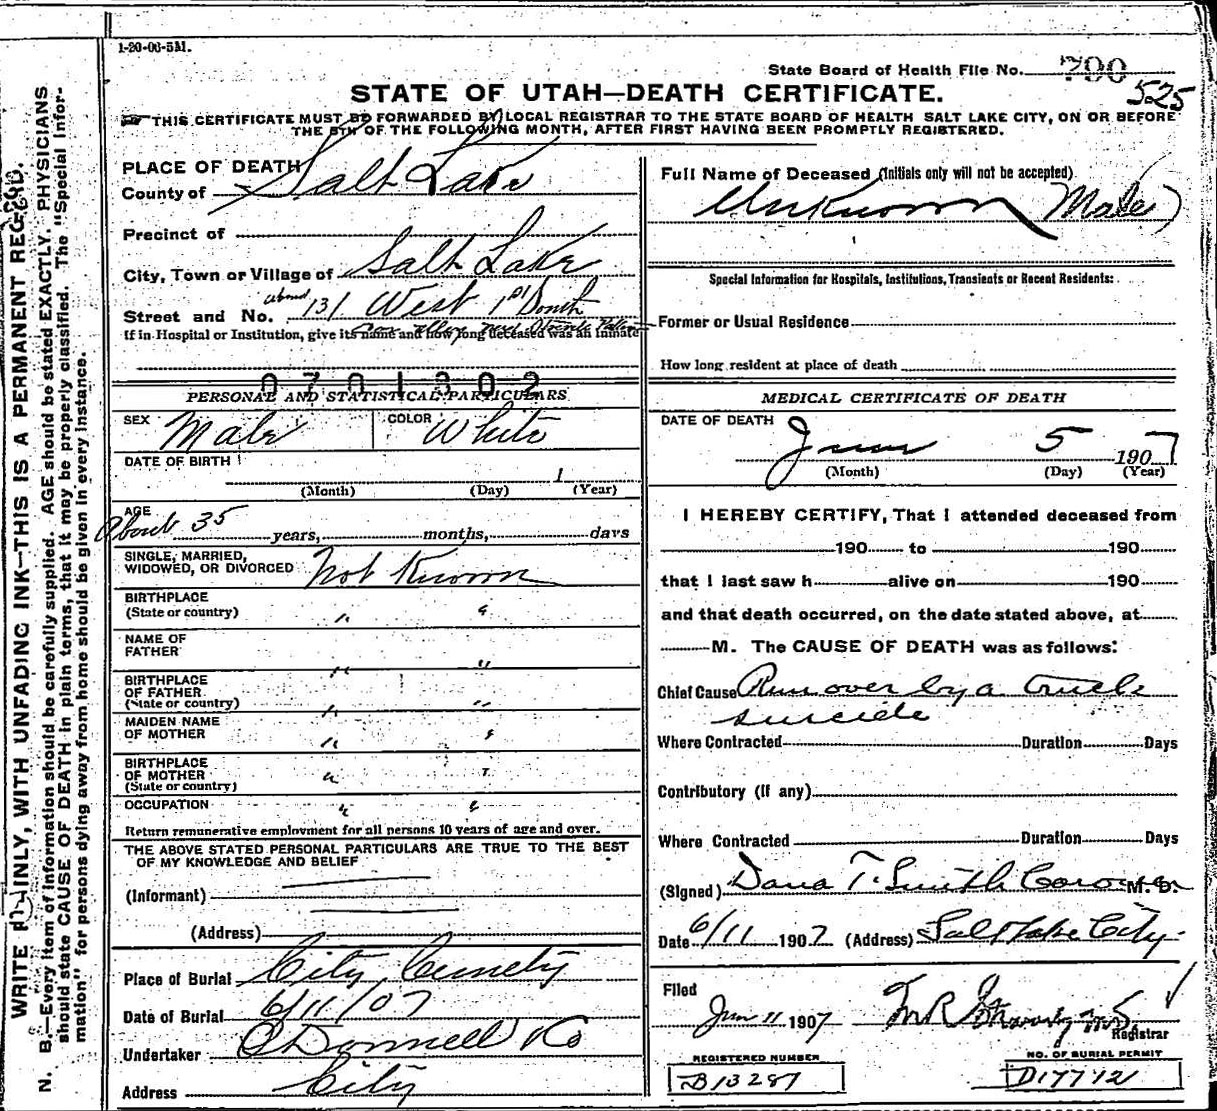 1-20-06-5M.
State Board of Health File No. 790
525
STATE OF UTAH—DEATH CERTIFICATE.
THIS CERTIFICATE MUST BE FORWARDED BY LOCAL REGISTRAR TO THE STATE BOARD OF HEALTH SALT LAKE CITY, ON OR BEFORE
THE 5TH OF THE FOLLOWING MONTH, AFTER FIRST HAVING BEEN PROMPTLY REGISTERED.
WRITE PLAINLY, WITH UNFADING INK—THIS IS A PERMANENT RECORD.
N. B.—Every item of information should be carefully supplied. AGE should be stated EXACTLY. PHYSICIANS
should state CAUSE OF DEATH in plain terms, that it may be properly classified. The "Special Infor-
mation" for persons dying away from home should be given in every instance.
PLACE OF DEATH
County of Salt Lake
Precinct of
City, Town or Village of Salt Lake
Street and No. about 131 West 1st South
If in Hospital or Institution, give its name and how long deceased was an inmate
0701302
PERSONAL AND STATISTICAL PARTICULARS
SEX Male COLOR White
DATE OF BIRTH
1
(Month) (Day) (Year)
AGE
About 35 years, months, days
SINGLE, MARRIED,
WIDOWED, OR DIVORCED Not Known
BIRTHPLACE
(State or country) " "
NAME OF
FATHER " "
BIRTHPLACE
OF FATHER
(State or country) " "
MAIDEN NAME
OF MOTHER " "
BIRTHPLACE
OF MOTHER
(State or country) " "
OCCUPATION " "
Return remunerative employment for all persons 10 years of age and over.
THE ABOVE STATED PERSONAL PARTICULARS ARE TRUE TO THE BEST
OF MY KNOWLEDGE AND BELIEF
(Informant)
(Address)
Place of Burial City Cemety
Date of Burial 6/11/07
Undertaker O'Donnell & Co
Address City
Full Name of Deceased (Initials only will not be accepted)
Unknown Male)
Special Information for Hospitals, Institutions, Transients or Recent Residents:
Former or Usual Residence
How long resident at place of death
MEDICAL CERTIFICATE OF DEATH
DATE OF DEATH
June 5 1907
(Month) (Day) (Year)
I HEREBY CERTIFY, That I attended deceased from
190 to 190
that I last saw h alive on 190
and that death occurred, on the date stated above, at
M. The CAUSE OF DEATH was as follows:
Chief Cause Run over by a truck
suicide
Where Contracted Duration Days
Contributory (if any)
Where Contracted Duration Days
(Signed) Dana T. Smith Coroner M. D.
Date 6/11 1907 (Address) Salt Lake City
Filed
Jun 11 1907
Registrar
REGISTERED NUMBER
B13287
NO. OF BURIAL PERMIT
D17712